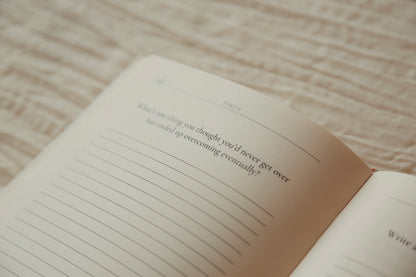 DATE
What's one thing you thought you'd never get over
but ended up overcoming eventually?
Write